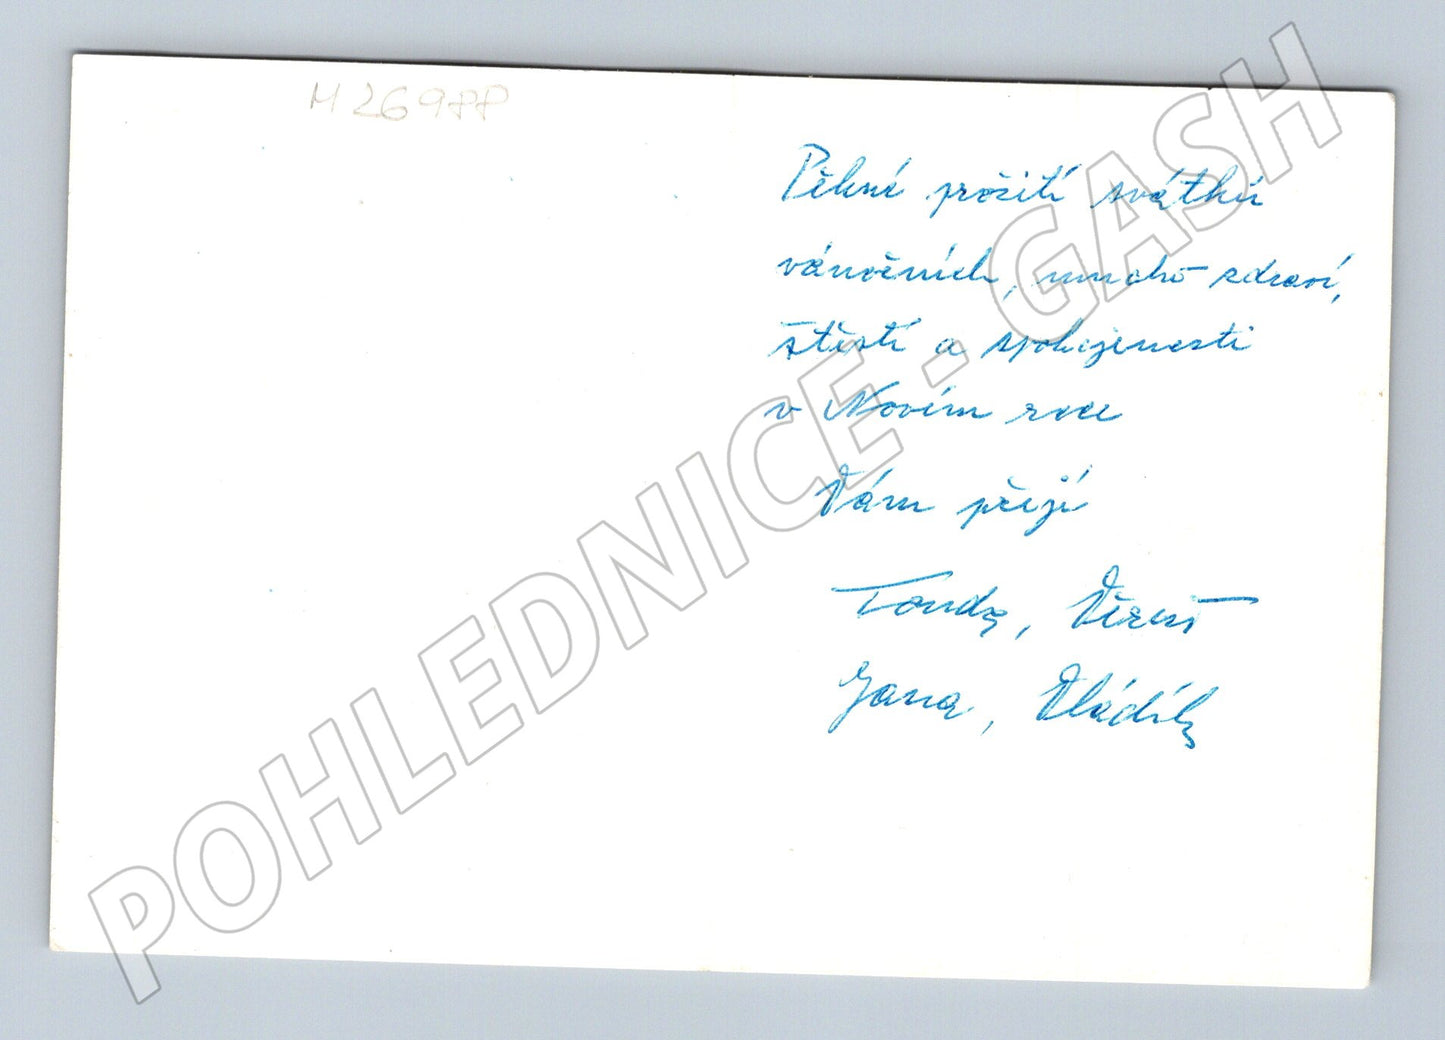 M 269PP
Pěkné prožití svátků
vánočních, mnoho zdraví,
štěstí a spokojenosti
v Novém roce
Vám přejí
Tonda,
Jana, Vládík
POHLEDNICE - GASH